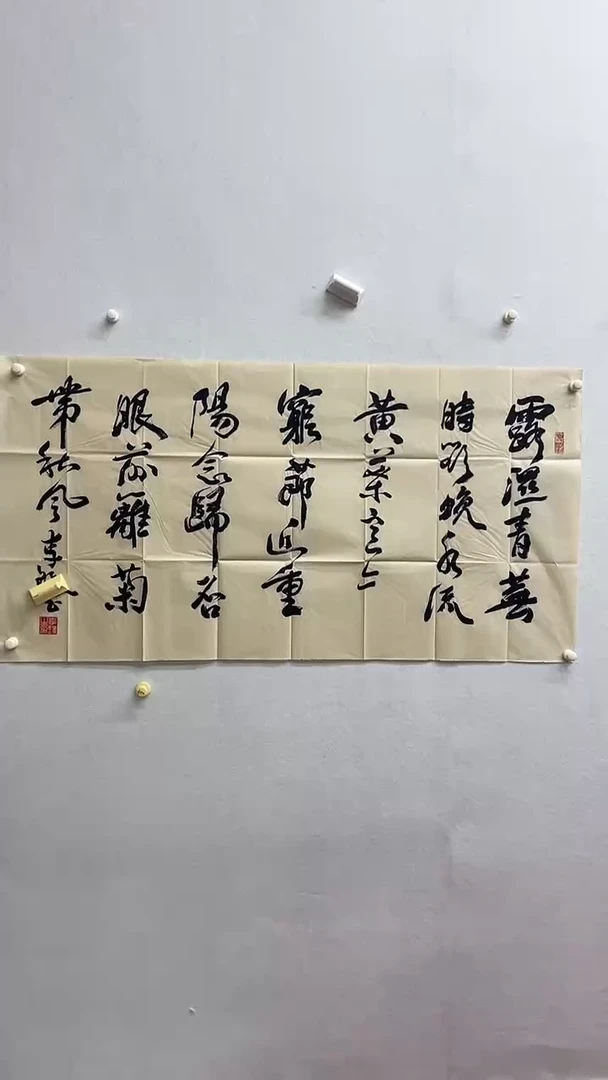 露濕青蕪
時欲晚水流
黄葉意无
窮節近重
陽念歸否
眼前籬菊
帶秋風